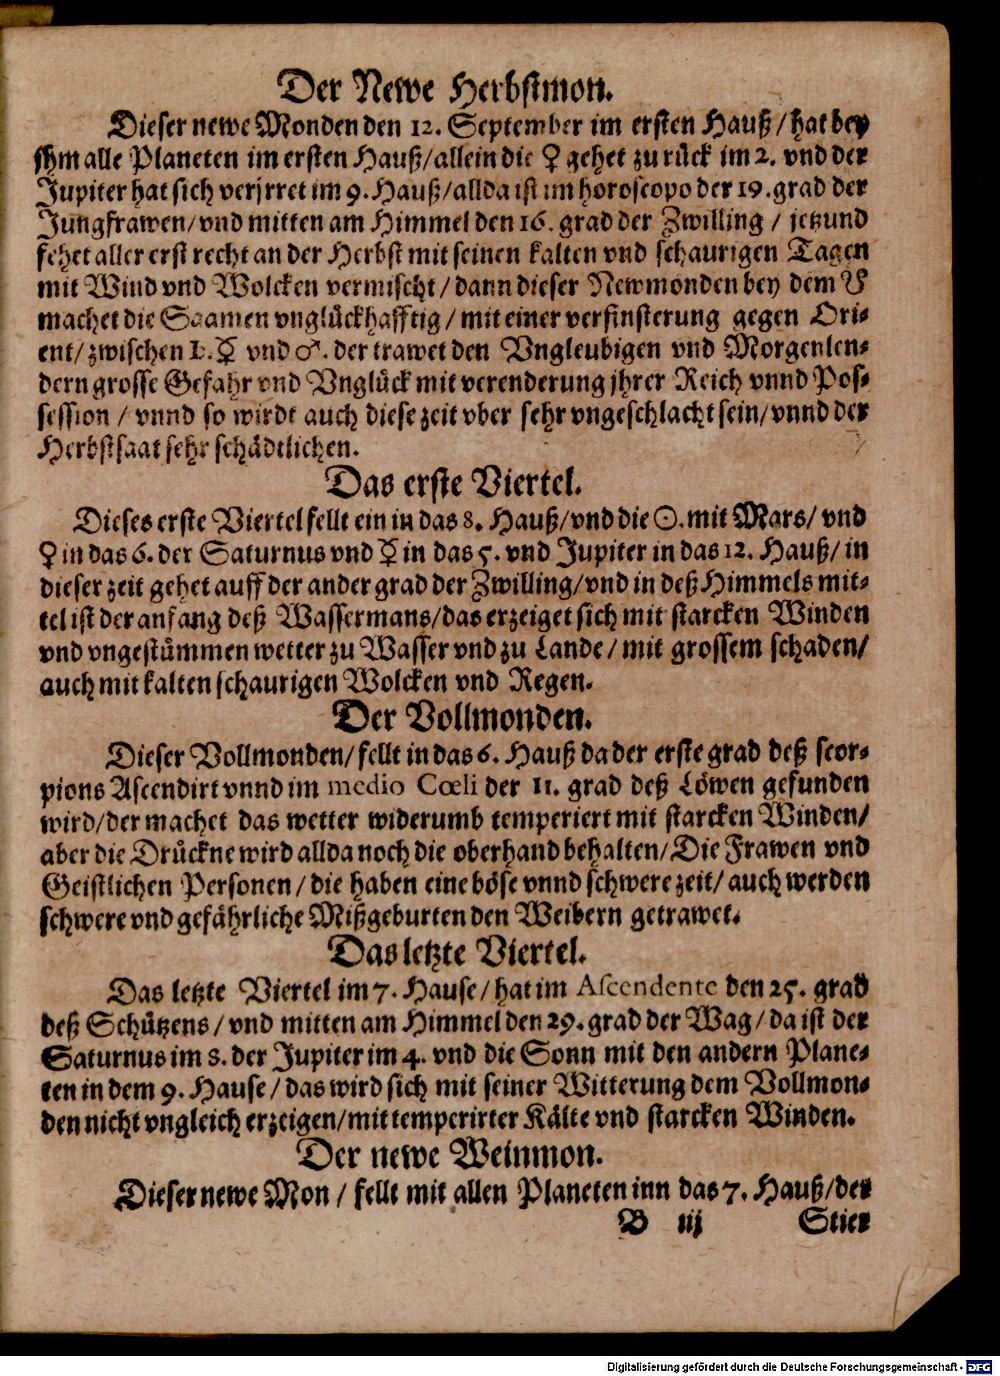 Der Newe Herbstmon.
Dieser newe Monden den 12. September im ersten Hauß/ hat bey
jhm alle Planeten im ersten Hauß/ allein die ♀ gehet zu růck im 2. vnd der
Jupiter hat sich verjrret im 9. Hauß/ allda ist im horoscopo der 19. grad der
Jungfrawen/ vnd mitten am Himmel den 16. grad der Zwilling / jetzund
fehet aller erst recht an der Herbst mit seinen kalten vnd schaurigen Tagen
mit Wind vnd Wolcken vermischt / dann dieser Newmonden bey dem ☋
machet die Saamen vnglückhafftig / mit einer verfinsterung gegen Ori-
ent/ zwischen ♄. ☿ vnd ♂. der trawet den Vngleubigen vnd Morgenlen-
dern grosse Gefahr vnd Vnglůck mit verenderung jhrer Reich vnnd Pos-
session / vnnd so wirdt auch diese zeit vber sehr vngeschlacht sein/ vnnd der
Herbstsaat sehr schädtlichen.
Das erste Viertel.
Dieses erste Viertel fellt ein in das 8. Hauß/ vnd die ☉. mit Mars/ vnd
♀ in das 6. der Saturnus vnd ☿ in das 5. vnd Jupiter in das 12. Hauß/ in
dieser zeit gehet auff der ander grad der Zwilling/ vnd in deß Himmels mit-
tel ist der anfang deß Wassermans/ das erzeiget sich mit starcken Winden
vnd vngestůmmen wetter zu Wasser vnd zu Lande / mit grossem schaden/
auch mit kalten schaurigen Wolcken vnd Regen.
Der Vollmonden.
Dieser Vollmonden/ fellt in das 6. Hauß da der erste grad deß scor-
pions Ascendirt vnnd im medio Cœli der 11. grad deß Löwen gefunden
wird/ der machet das wetter widerumb temperiert mit starcken Winden/
aber die Drůckne wird allda noch die oberhand behalten/ Die Frawen vnd
Geistlichen Personen / die haben eine böse vnnd schwere zeit/ auch werden
schwere vnd gefährliche Mißgeburten den Weibern getrawet.
Das letzte Viertel.
Das letzte Viertel im 7. Hause/ hat im Ascendente den 25. grad
deß Schützens / vnd mitten am Himmel den 29. grad der Wag / da ist der
Saturnus im 8. der Jupiter im 4. vnd die Sonn mit den andern Plane-
ten in dem 9. Hause / das wird sich mit seiner Witterung dem Vollmon-
den nicht vngleich erzeigen/ mit temperirter Kälte vnd starcken Winden.
Der newe Weinmon.
Dieser newe Mon / fellt mit allen Planeten inn das 7. Hauß/ der
B iij Stier
Digitalisierung gefördert durch die Deutsche Forschungsgemeinschaft - DFG